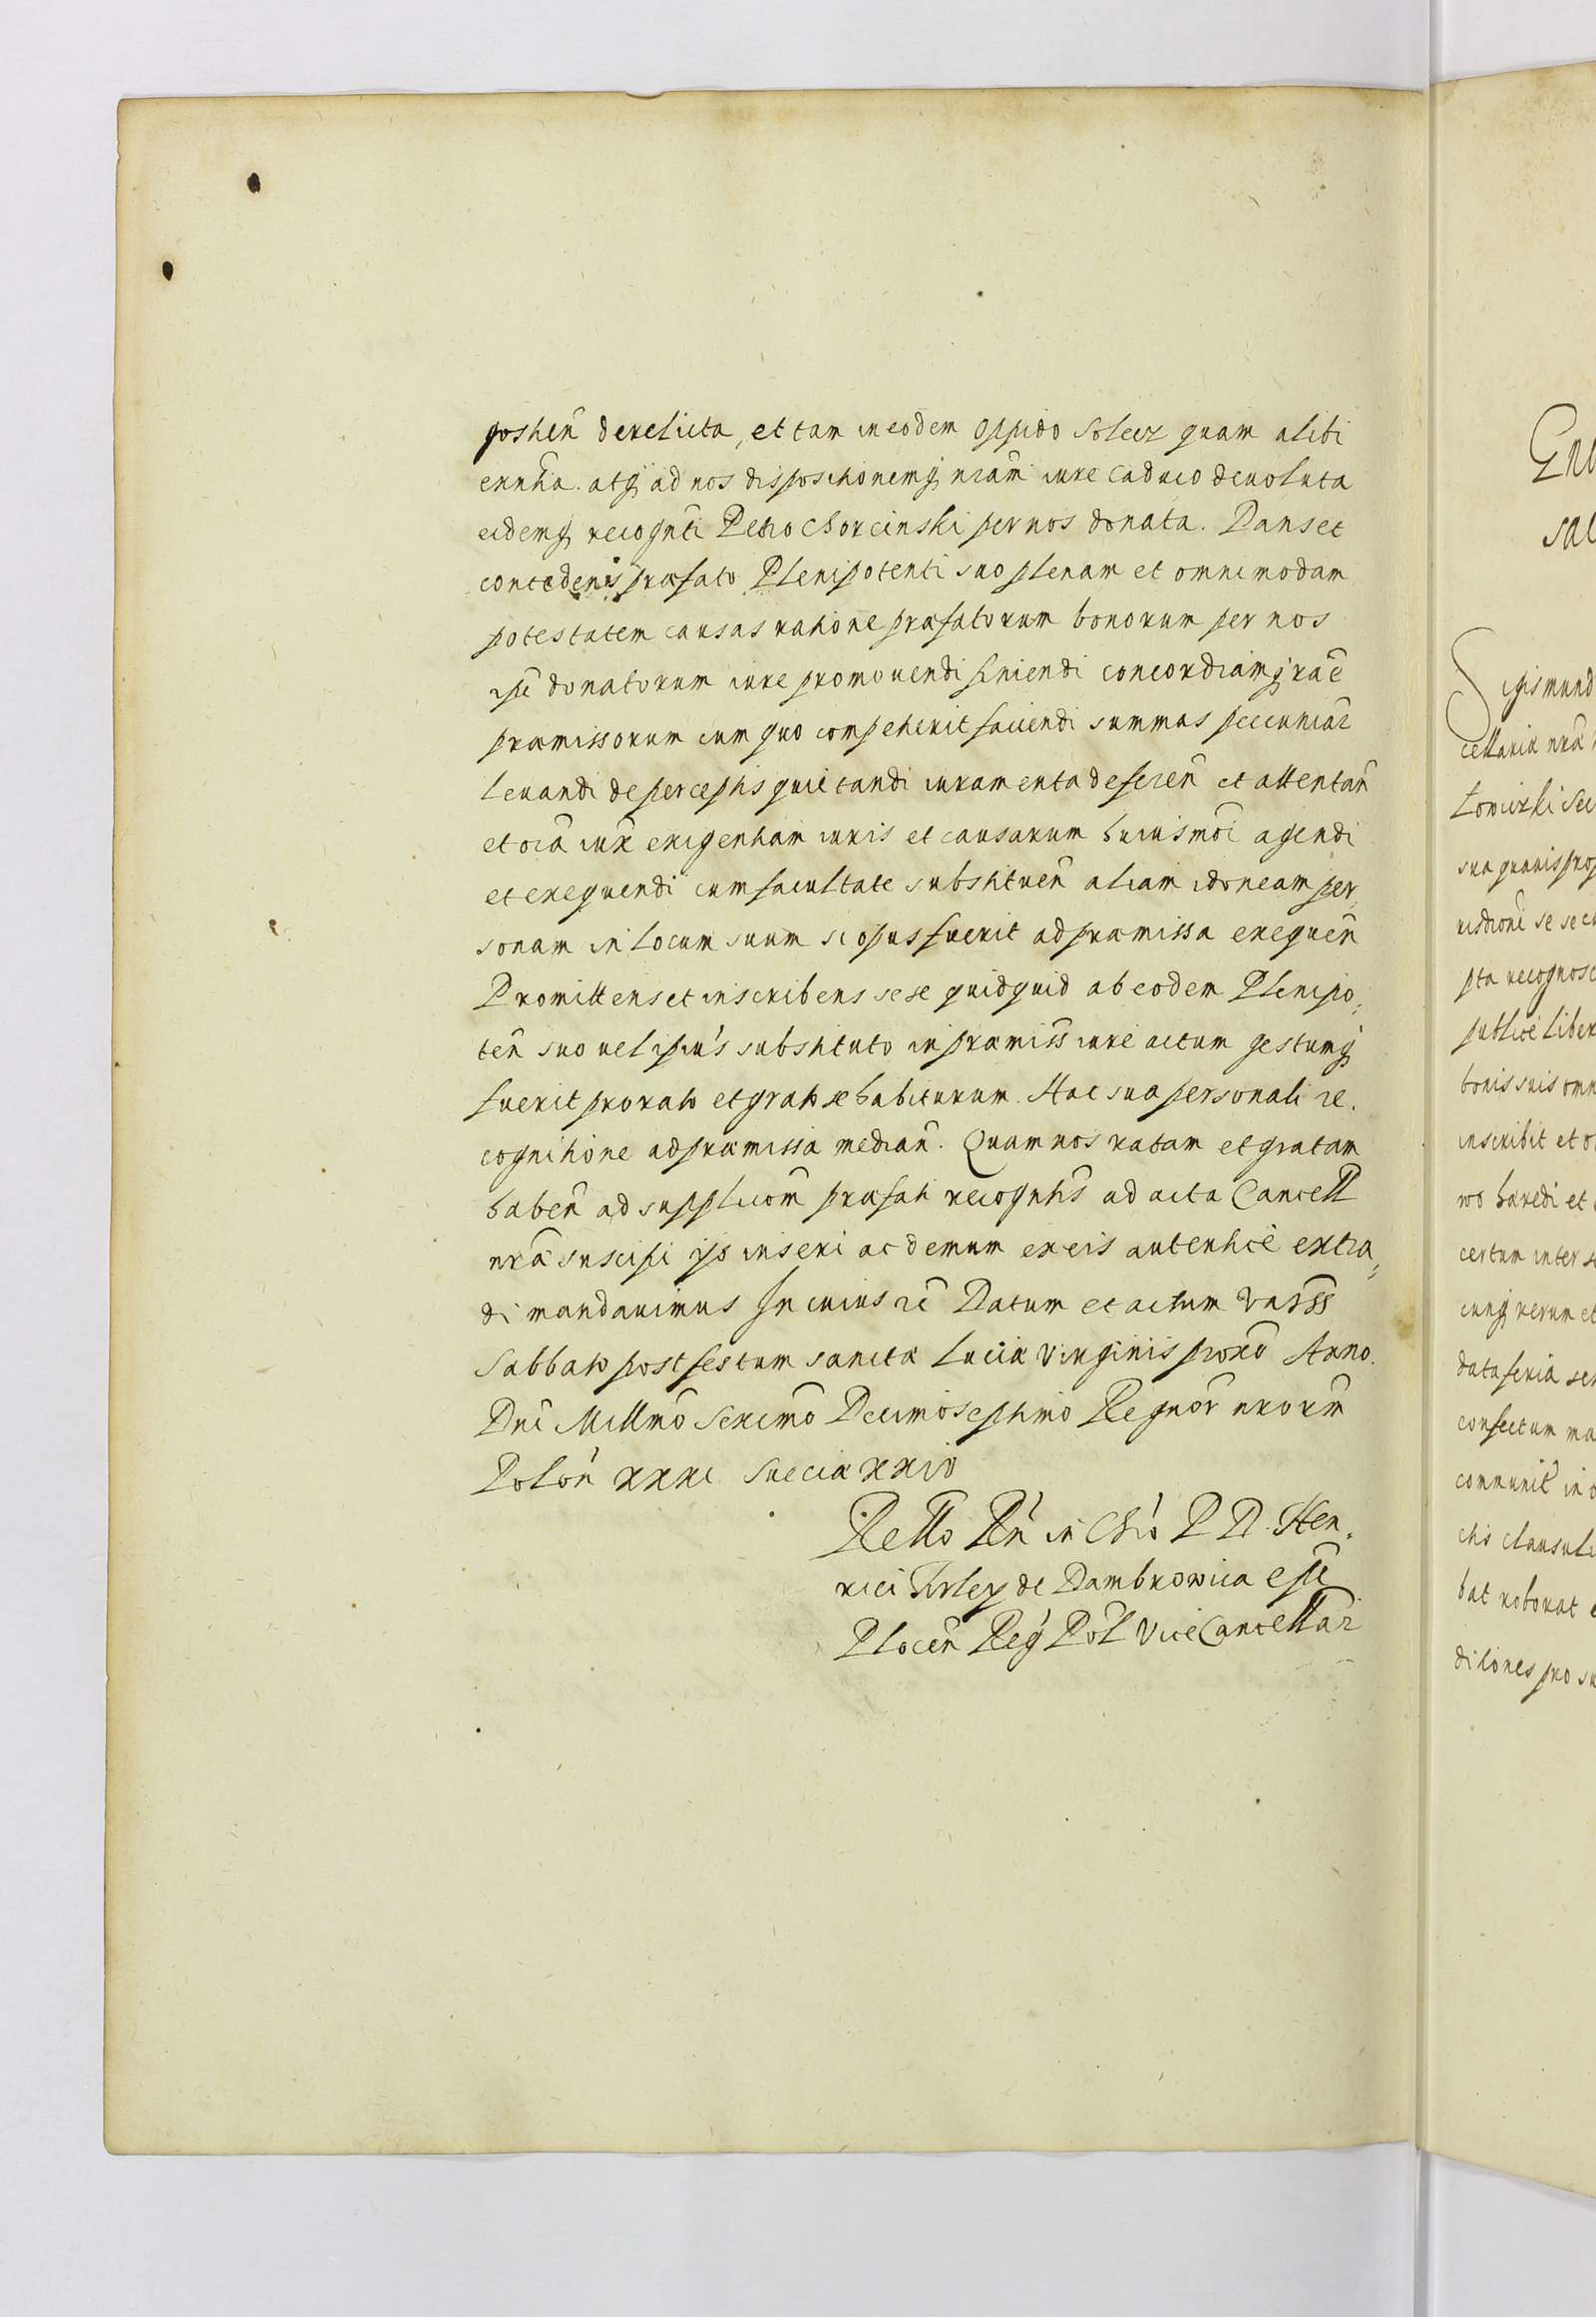 posterĩ derelicta, et tam in eodem oppido Solecz quam alibi
exñtia. atq̃ ad nos dispositionemq̃ nrãm iure caduco devoluta
eidemq̃ recognti Petro Chorcinski per nos donata. Dans et
concedens præfato Plenipotenti suo plenam et omnimodam
potestatem causas ratione præfatorum bonorum per nos
ipsi donatorum iure promovendi finiendi concordiamq̃ raẽ
præmissorum cum quo competierit faciendi summas pecuniar
levandi de perceptis quietandi iuramenta deferen̄ et attentan̄
et oĩa iux exigentiam iuris et causarum huiusmõi agendi
et exequendi cum facultate substituen̄ aliam idoneam per,
sonam in locum suum si opus fuerit ad præmissa exequen̄
Promittens et inscribens sese quidquid ab eodem Plenipo,
ten̄ suo vel ipius substituto in præmiss iure actum gestumq̃
fuerit pro rato et grato se habiturum. Hac sua personali re.
cognitione ad præmissa median̄. Quam nos ratam et gratam
haben̄ ad supplicom̄ præfati recogntis ad acta Cancell
nrã suscipi ijs inseri ac demum ex eis autentice extra,
di mandavimus In cuius rei Datum et actum Varss
Sabbato post festum sanctæ Luciæ Virginis proxo Anno.
Dni Millmo Sexcmo Decimoseptimo Regnor nrorm̄
Polon̄ XXXI Sueciæ XXIV
Rello Rn̄ in Chro P D. Hen,
rici Firley de Dambrowica Epi
Plocen̄ Reg Pol ViceCancellar
Sigismund
cellaria nra
Łowiczki
publice liber
bonis suis omn
inscribit et
ro haredi et
certum inter
cunq̃ rerum et
data feria
confectum ma
communit in
clausul
bat roborat
ditiones pro